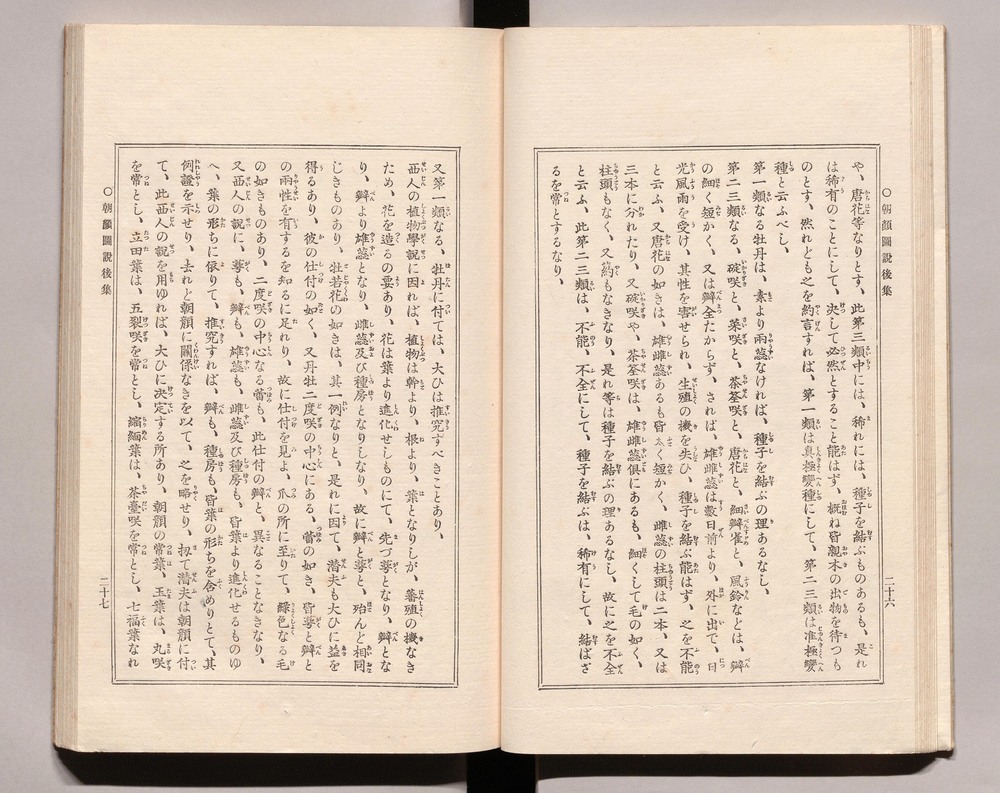 ○朝顏圖說後集
二十六
や、唐花等なりとす、此第三類中には、稀れには、種子を結ぶものあるも、是れ
は稀有のことにして、決して必然とすること能はず、概ね皆親木の出物を待つも
のとす、然れども之を約言すれば、第一類は真極變種にして、第二三類は准極變
種と云ふべし、
第一類なる牡丹は、素より兩蕊なければ、種子を結ぶの理あるなし、
第二三類なる、碇咲と、菜咲と、茶筌咲と、唐花と、細辧雀と、風鈴などは、辧
の細く短かく、又は辧全たからず、されば、雄雌蕊は數日前より、外に出で、日
光風雨を受け、其性を害せられ、生殖の機を失ひ、種子を結ぶ能はず、之を不能
と云ふ、又唐花の如きは、雄雌蕊あるも皆太く短かく、雌蕊の柱頭は二本、又は
三本に分れたり、又碇咲や、茶筌咲は、雄雌蕊俱にあるも、細くして毛の如く、
柱頭もなく、又葯もなきなり、是れ等は種子を結ぶの理あるなし、故に之を不全
と云ふ、此第二三類は、不能、不全にして、種子を結ぶは、稀有にして、結ばざ
るを常とするなり、
又第一類なる、牡丹に付ては、大ひは推究すべきことあり、
西人の植物學說に因れば、植物は幹より、根より、葉となりしが、蕃殖の機なき
ため、花を造るの要あり、花は葉より進化せしものにて、先づ萼となり、辧とな
り、辧より雄蕊となり、雌蕊及び種房となりしなり、故に辧と萼と、殆んど相同
じきものあり、牡若花の如きは、其一例なりと、是れに因て、潜夫も大ひに益を
得るあり、彼の仕付の如く、又丹牡二度咲の中心にある、蕾の如き、皆萼と辧と
の兩性を有するを知るに足れり、故に仕付を見よ、爪の所に至りて、綠色なる毛
の如きものあり、二度咲の中心なる蕾も、此仕付の辧と、異なることなきなり、
又西人の說に、萼も、辧も、雄蕊も、雌蕊及び種房も、皆葉より進化せるものゆ
へ、葉の形ちに依りて、推究すれば、辧も、種房も、皆葉の形ちを含めりとて、其
例證を示せり、去れど朝顏に關係なきを以て、之を略せり、扨て潜夫は朝顏に付
て、此西人の說を用ゆれば、大ひに決定する所あり、朝顏の常葉、玉葉は、丸咲
を常とし、立田葉は、五裂咲を常とし、縮緬葉は、茶臺咲を常とし、七福葉なれ
○朝顏圖說後集
二十七